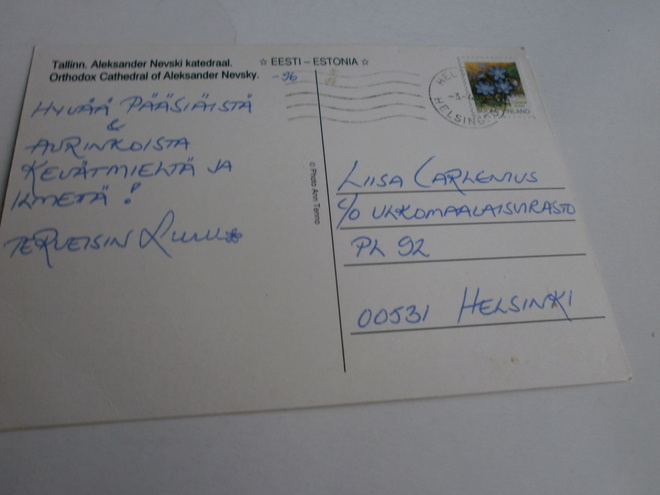 Tallinn. Aleksander Nevski katedraal.
Orthodox Cathedral of Aleksander Nevsky.
☆ EESTI – ESTONIA ☆
-96
HYVÄÄ PÄÄSIÄISTÄ
&
AURINKOISTA
KEVÄTMIELTÄ JA
ILMETÄ!
TERVEISIN
© Photo Ann Tenno
LIISA CARLENIUS
c/o ULKOMAALAISVIRASTO
PL 92
00531 HELSINKI